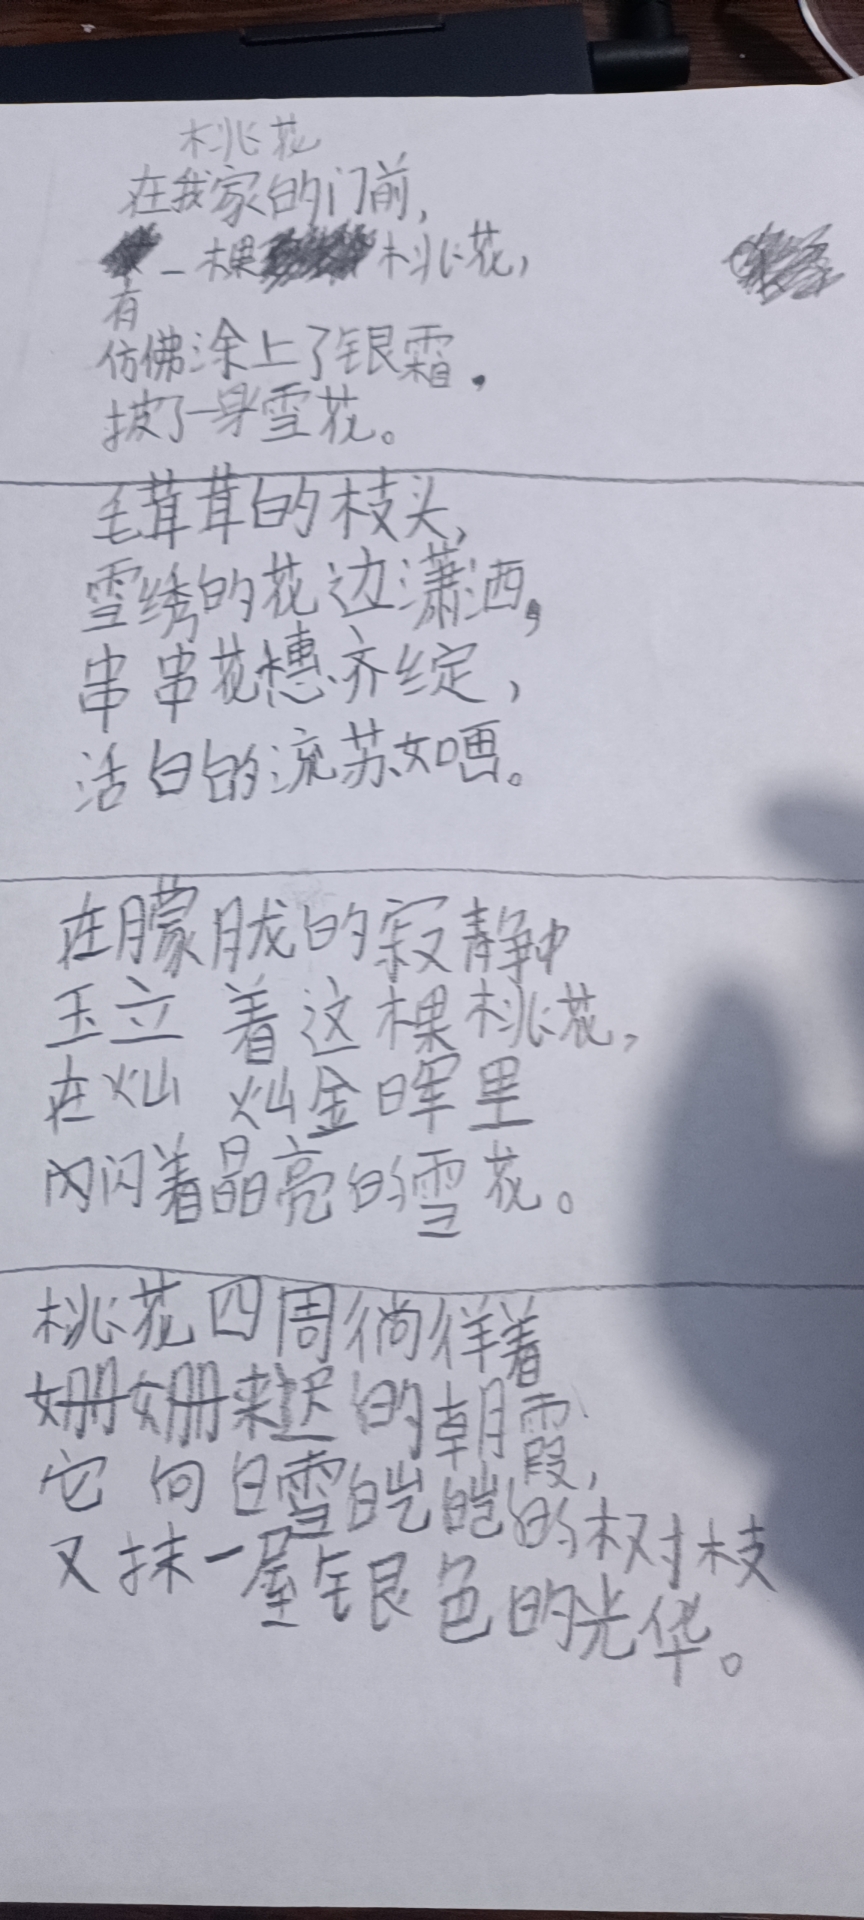 桃花
在我家的门前,
一棵桃花,
有
仿佛涂上了银霜,
披了一身雪花。
毛茸茸的枝头,
雪绣的花边潇洒,
串串花穗齐绽,
活白的流苏如画。
在朦胧的寂静中
玉立着这棵桃花,
在灿灿金晖里
闪闪着晶亮的雪花。
桃花四周徜徉着
姗姗来迟的朝霞,
它向白雪皑皑的树枝
又抹一层银色的光华。